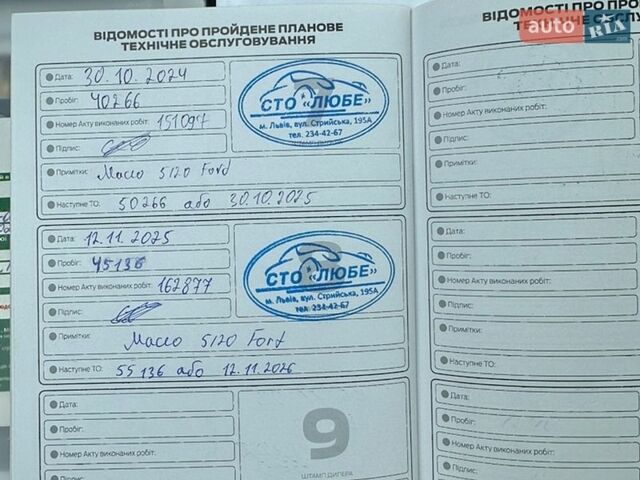 ВІДОМОСТІ ПРО ПРОЙДЕНЕ ПЛАНОВЕ
ТЕХНІЧНЕ ОБСЛУГОВУВАННЯ
Дата: 30.10.2024
Пробіг: 40266
Номер Акту виконаних робіт: 151097
Підпис:
Примітки: Масло 5120 Ford
Наступне ТО: 50266 або 30.10.2025
СТО «ЛЮБЕ»
м. Львів, вул. Стрийська, 195А
тел. 234-42-67
ШТАМП ДИЛЕРА
Дата: 12.11.2025
Пробіг: 45136
Номер Акту виконаних робіт: 162877
Підпис:
Примітки: Масло 5120 Ford
Наступне ТО: 55136 або 12.11.2026
СТО «ЛЮБЕ»
м. Львів, вул. Стрийська, 195А
тел. 234-42-67
Дата:
Пробіг:
Номер Акту виконаних робіт:
Підпис:
9
ШТАМП ДИЛЕРА
ВІДОМОСТІ ПРО
ТЕХНІЧНЕ ОБСЛУ
Дата:
Пробіг:
Номер Акту виконаних робіт:
Підпис:
Примітки:
Наступне ТО:
Дата:
Пробіг:
Номер Акту виконаних робіт:
Підпис:
Примітки:
Наступне ТО:
Дата:
Пробіг:
Номер Акту виконаних робіт:
Підпис:
auto RIA.com